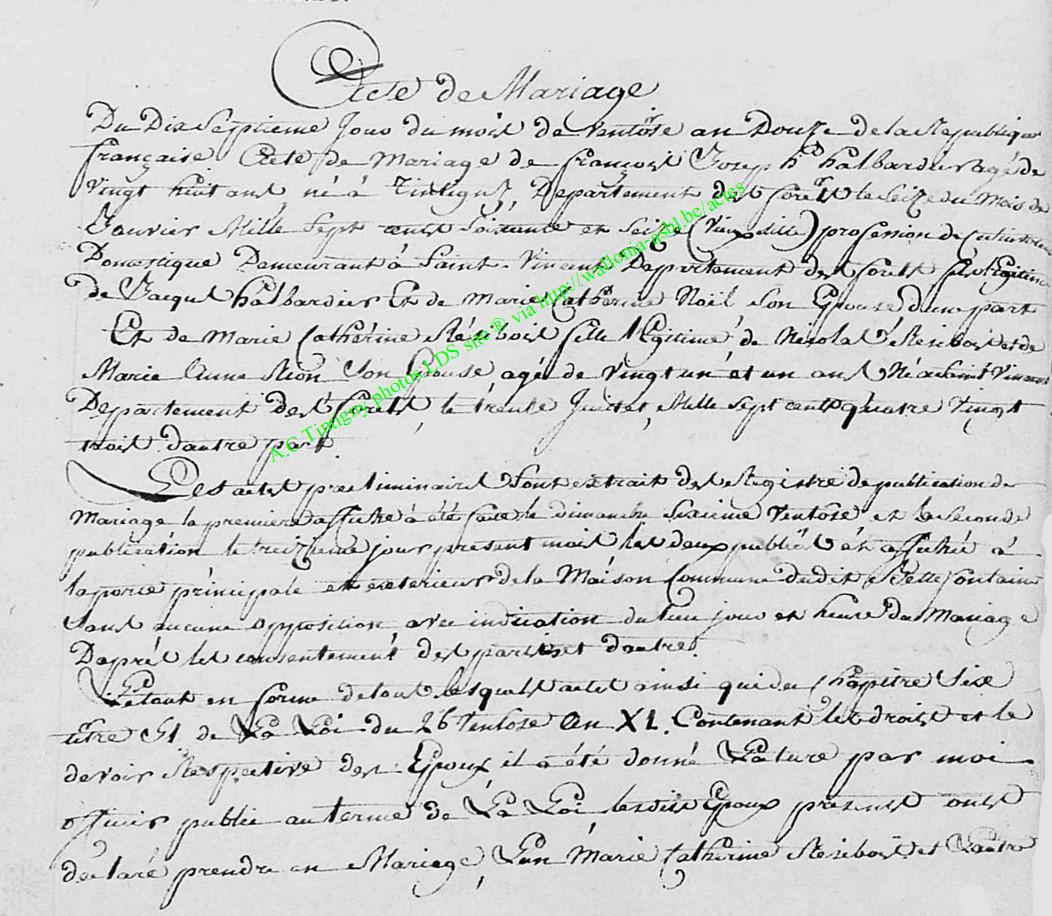 Acte de Mariage
Du Dix Septieme Jour du mois de Ventôse an Douze de la Republique
française Acte de Mariage de françois Joseph halbardier agé de
Vingt huit ans né à Tintigny, Departement des forêts le Seize du Mois de
Janvier Mille Sept cens Soixante et Seize profession de
Domestique Demeurant à Saint-Vincent Departement des forêts
de Jacque halbardier Et de Marie Catherine Noël Son Epouse d'une part
Et de Marie Catherine Résibois fille légitime de Nicolas Resibois et de
Marie Anne Son Epouse agé de Vingt un et un ans Né à Saint Vincent
Departement des forêts, le trente Juillet, Mille Sept cent quatre Vingt
trois d'autre part
Les actes preliminaires Sont extrait des Registre de publication de
Mariage la premiere affiche à été faite le dimanche Sixieme Ventose et la Seconde
publication le treizieme jour présent mois les deux publiés et affiché à
la porte principale et exterieur de la Maison Commune dudit Bellefontaine
Sans aucune opposition avec indication du lieu jour et heure du Mariage
D'après les consentement des parties et d'autre.
Le tout en forme de tous lesquels actes ainsi que du Chapitre Sixe
titre de La Loi du 26 Ventose An XI. Contenant les droits et le
devoir Respective des Epoux il a été donné Lecture par moi
officier public au terme de La Loi lesdits Epoux présens ont
declaré prendre en Mariage, L'un Marie Catherine Resibois et L'autre
A.C Tintigny photos LDS site ® via http://wallonia-asbl.be/actes